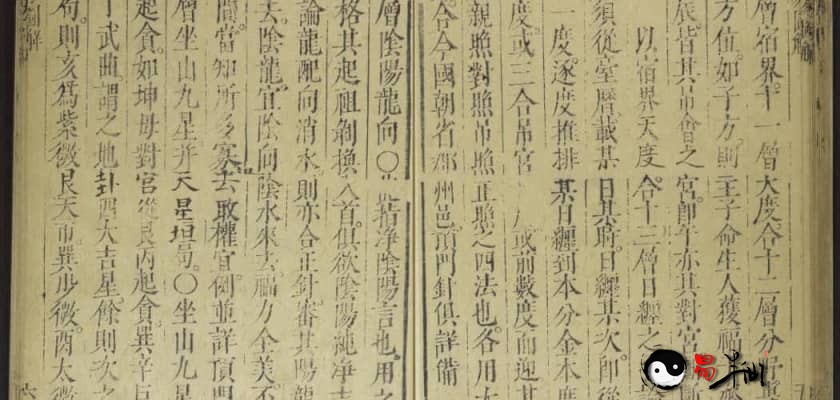 層宿界十一層天度合十二層分
方值如子方則主子命生人獲福
辰皆其吊會之宮即午亦其對宮
以宿界天度合十三層日纏之
須從臺曆載某日某時日纏某次即從
一度逐度推排某日纏到本分金本度
度或三合吊宮或前數度面迎其
親照對照吊照正照之四法也各用
合今國朝省郡州邑頂門針俱詳備
層陰陽龍向〇指淨陰陽言也用之
格其起祖剝換入首俱欲陰陽純淨
論龍配向消水則亦合正針審其陽龍
去陰龍宜陰向陰水來去福力全美否
間當知所多寡去取權宜倒並詳頂門
層坐山九星并天星垣局〇坐山九星
起貪如坤母對宮從艮丙起貪巽辛巨
武曲謂之地卦四大吉星餘則次之
局則亥為紫微艮天市巽少微丙太微
易半山